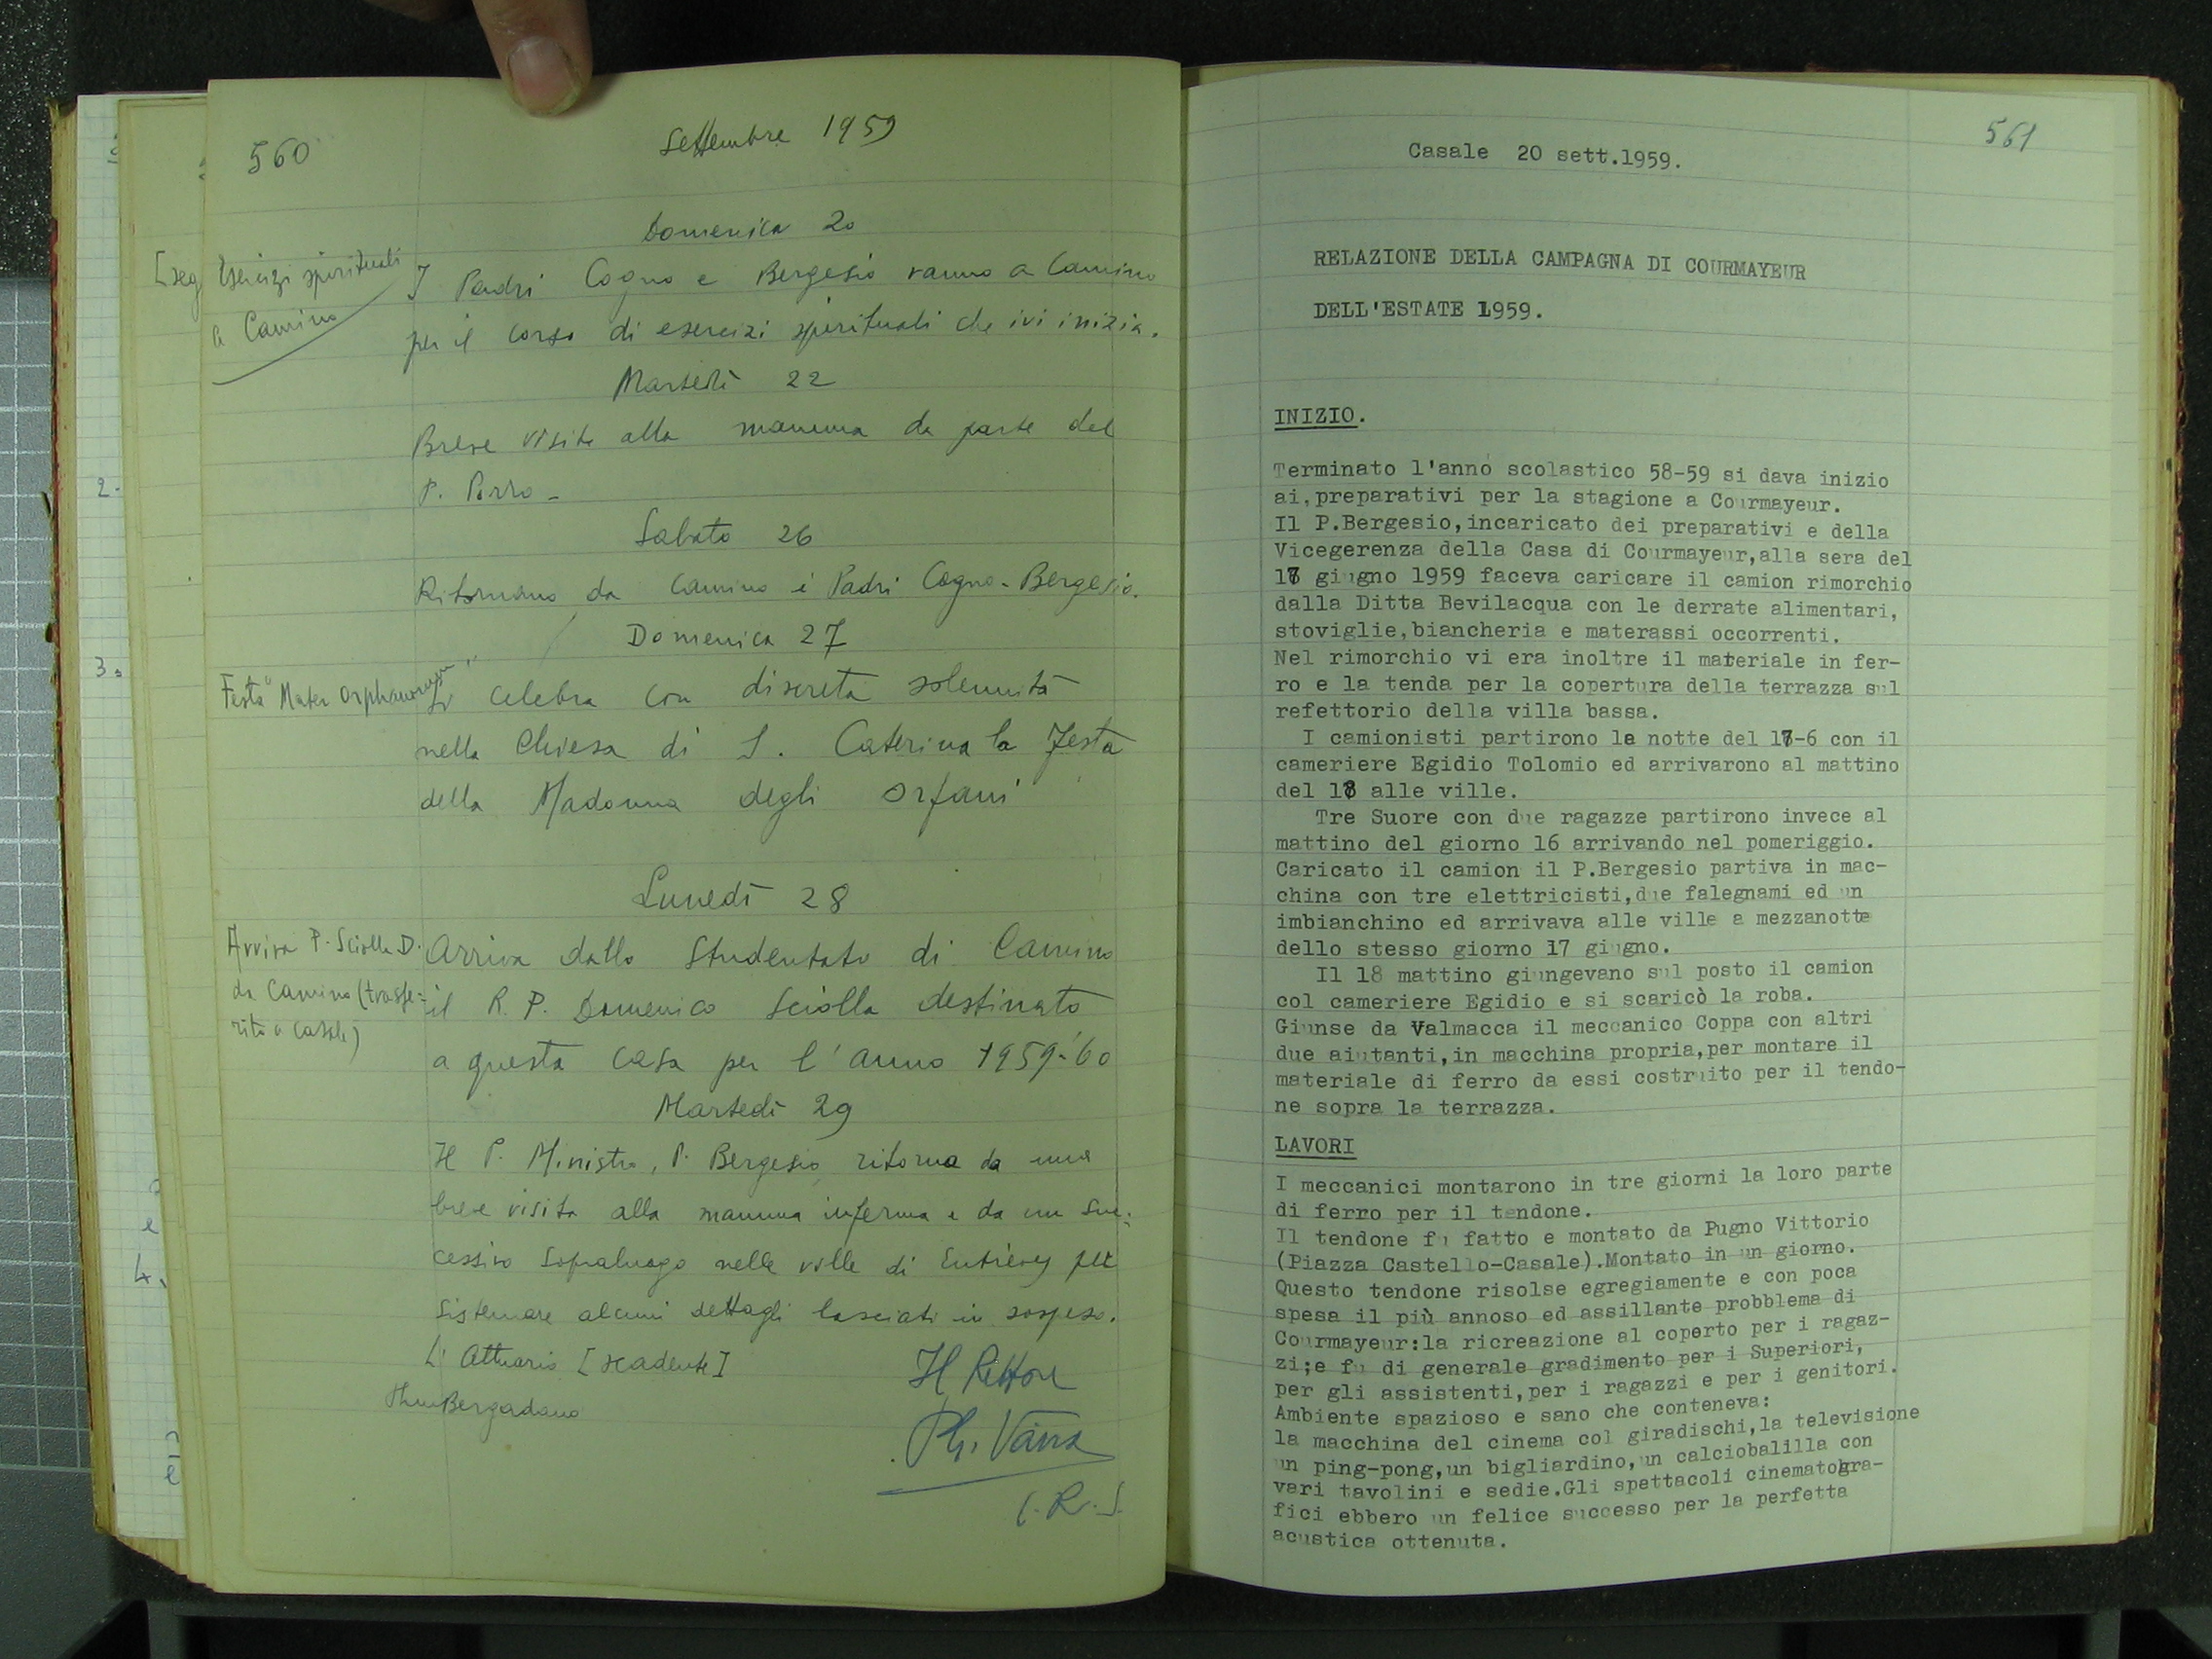 560
Settembre 1959
Domenica 20
[seg Esercizi spirituali
a Camino
I Padri Cogno e Bergesio vanno a Camino
per il corso di esercizi spirituali che ivi inizia.
Martedì 22
Breve visita alla mamma da parte del
P. Porro -
Sabato 26
Ritornano da Camino i Padri Cogno - Bergesio.
Domenica 27
Festa "Mater Orphanorum"
Si celebra con discreta solennità
nella Chiesa di S. Caterina la Festa
della Madonna degli Orfani
Lunedì 28
Arriva P. Sciolla D.
da Camino (trasfe=
rito a Casale)
Arriva dallo Studentato di Camino
il R. P. Domenico Sciolla destinato
a questa casa per l'anno 1959-'60
Martedì 29
Il P. Ministro, P. Bergesio, ritorna da una
breve visita alla mamma inferma e da un suc=
cessivo sopraluogo nelle ville di Entrèves per
sistemare alcuni dettagli lasciati in sospeso.
L'Attuario [scadente]
Bergadano
Il Rettore
Vairа
C.R.S.
2.
3.
4.
561
Casale 20 sett.1959.
RELAZIONE DELLA CAMPAGNA DI COURMAYEUR
DELL'ESTATE 1959.
INIZIO.
Terminato l'anno scolastico 58-59 si dava inizio
ai,preparativi per la stagione a Courmayeur.
Il P.Bergesio,incaricato dei preparativi e della
Vicegerenza della Casa di Courmayeur,alla sera del
17 giugno 1959 faceva caricare il camion rimorchio
dalla Ditta Bevilacqua con le derrate alimentari,
stoviglie,biancheria e materassi occorrenti.
Nel rimorchio vi era inoltre il materiale in fer-
ro e la tenda per la copertura della terrazza sul
refettorio della villa bassa.
I camionisti partirono la notte del 17-6 con il
cameriere Egidio Tolomio ed arrivarono al mattino
del 18 alle ville.
Tre Suore con due ragazze partirono invece al
mattino del giorno 16 arrivando nel pomeriggio.
Caricato il camion il P.Bergesio partiva in mac-
china con tre elettricisti,due falegnami ed un
imbianchino ed arrivava alle ville a mezzanotte
dello stesso giorno 17 giugno.
Il 18 mattino giungevano sul posto il camion
col cameriere Egidio e si scaricò la roba.
Giunse da Valmacca il meccanico Coppa con altri
due aiutanti,in macchina propria,per montare il
materiale di ferro da essi costruito per il tendo-
ne sopra la terrazza.
LAVORI
I meccanici montarono in tre giorni la loro parte
di ferro per il tendone.
Il tendone fu fatto e montato da Pugno Vittorio
(Piazza Castello-Casale).Montato in un giorno.
Questo tendone risolse egregiamente e con poca
spesa il più annoso ed assillante probblema di
Courmayeur:la ricreazione al coperto per i ragaz-
zi;e fu di generale gradimento per i Superiori,
per gli assistenti,per i ragazzi e per i genitori.
Ambiente spazioso e sano che conteneva:
la macchina del cinema col giradischi,la televisione
un ping-pong,un bigliardino,un calciobalilla con
vari tavolini e sedie.Gli spettacoli cinematogra-
fici ebbero un felice successo per la perfetta
acustica ottenuta.